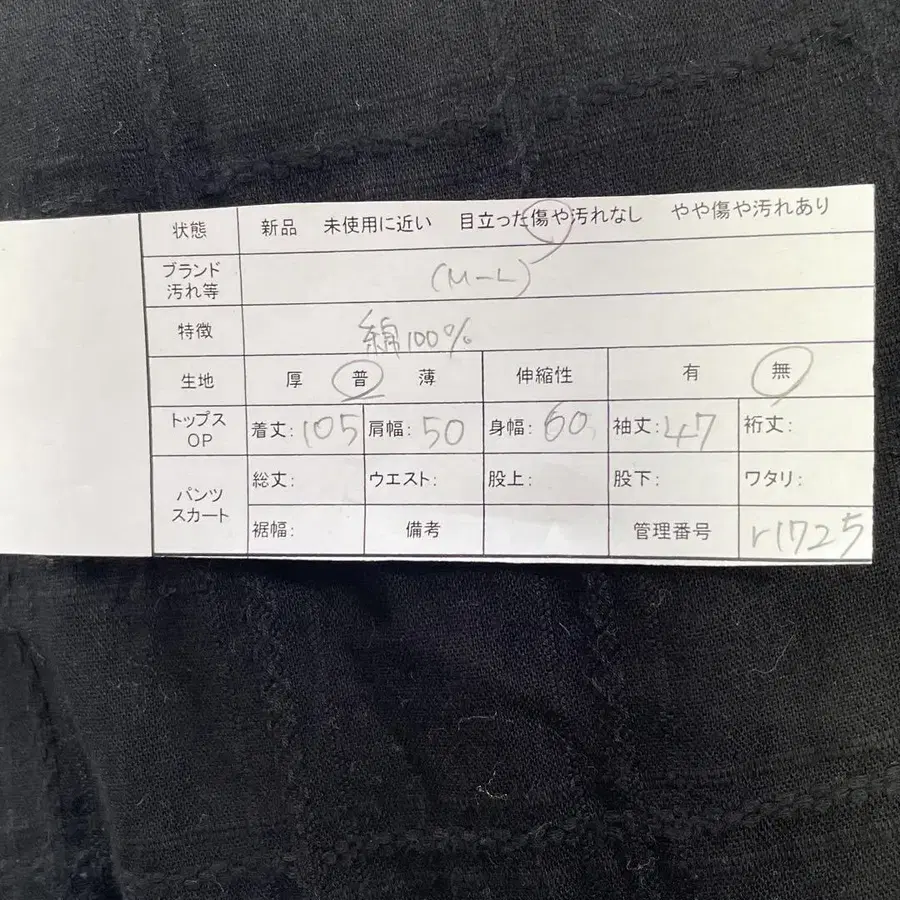 状態 新品 未使用に近い 目立った傷や汚れなし やや傷や汚れあり
ブランド
汚れ等 (M-L)
特徴 綿100%
生地 厚 普 薄 伸縮性 有 無
トップス
OP 着丈:105 肩幅:50 身幅:60 袖丈:47 裄丈:
パンツ
スカート 総丈: ウエスト: 股上: 股下: ワタリ:
裾幅: 備考 管理番号 r1725